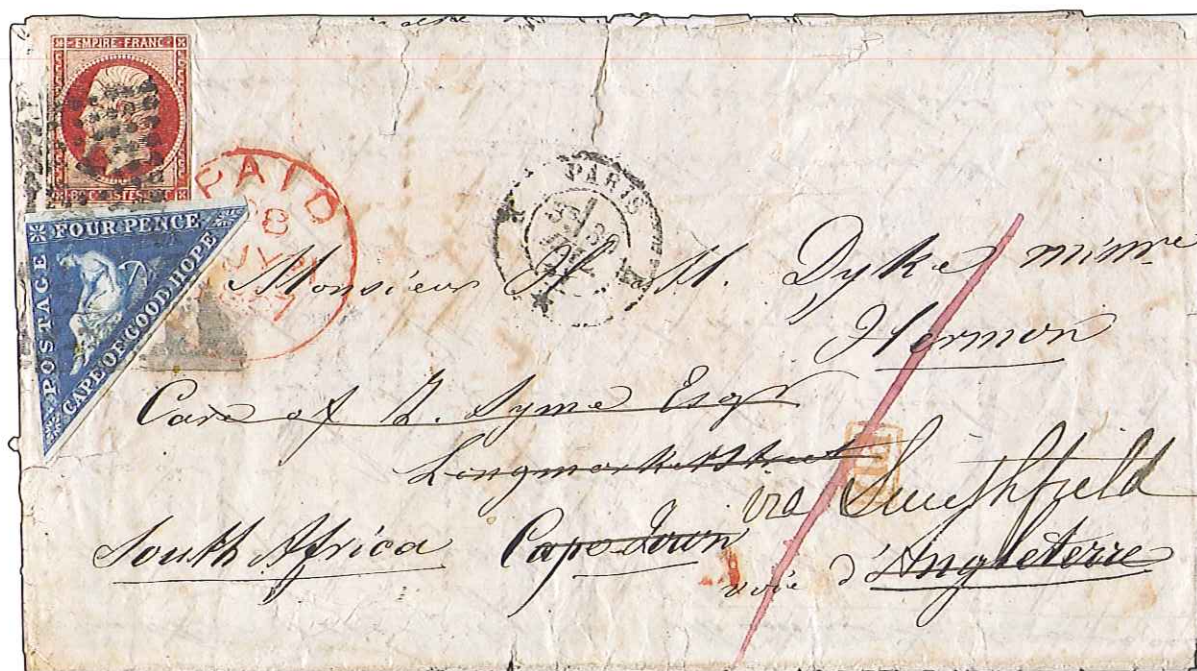 EMPIRE FRANC
80 C POSTES 80 C
FOUR PENCE
POSTAGE
CAPE OF GOOD HOPE
PAID
PARIS
Monsieur H. M. Dyke minre
Hermon
Care of Z. Syme Esqr
Longmarket Street
via Smithfield
South Africa Cape Town
voie d'Angleterre